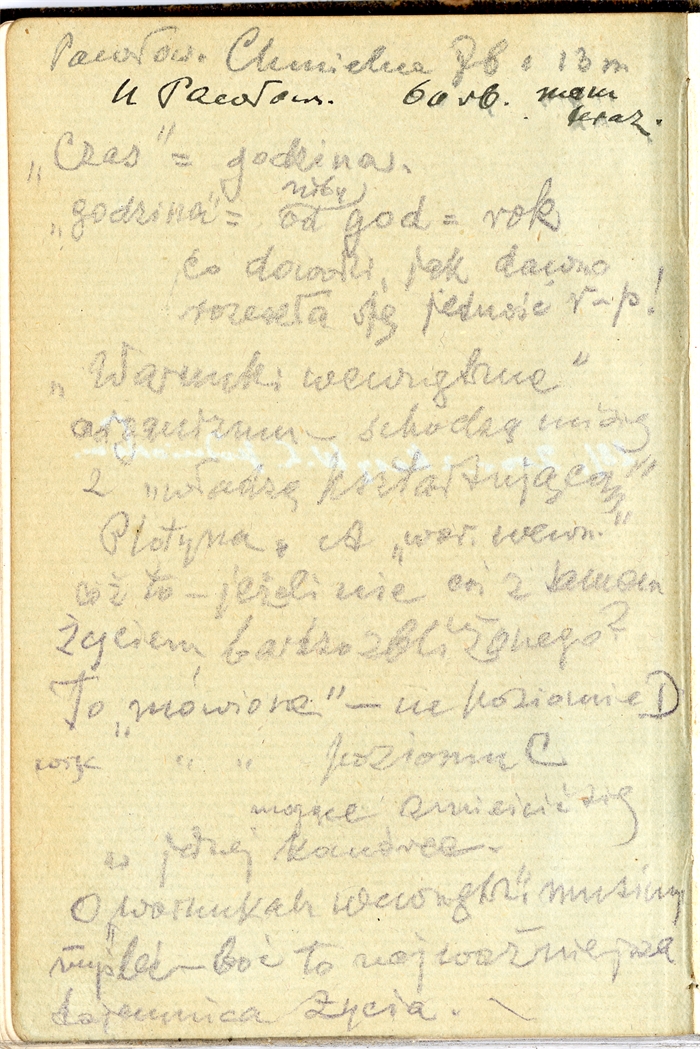 Pacołow. Chmielna 78 13 m
U Pacołow. 60 rb. mam
teraz.
„Czas" = godzina.
niby
„godzina" = od god = rok
co dowodzi, jak dawno
rozeszła się jedność r–p!
„Warunki wewnętrzne"
organizmu – schodzą mi się
z „władzą kształtującą"
Plotyna. A „war. wewn."
cóż to – jeżeli nie coś z samem
życiem bardzo zbliżonego?
To „mówione" – na poziomie D
więc " " poziomu C
mogące zmieścić się
w jednej komórce.
O „warunkach wewnętrz." musimy
myśleć – boć to najważniejsza
tajemnica życia.